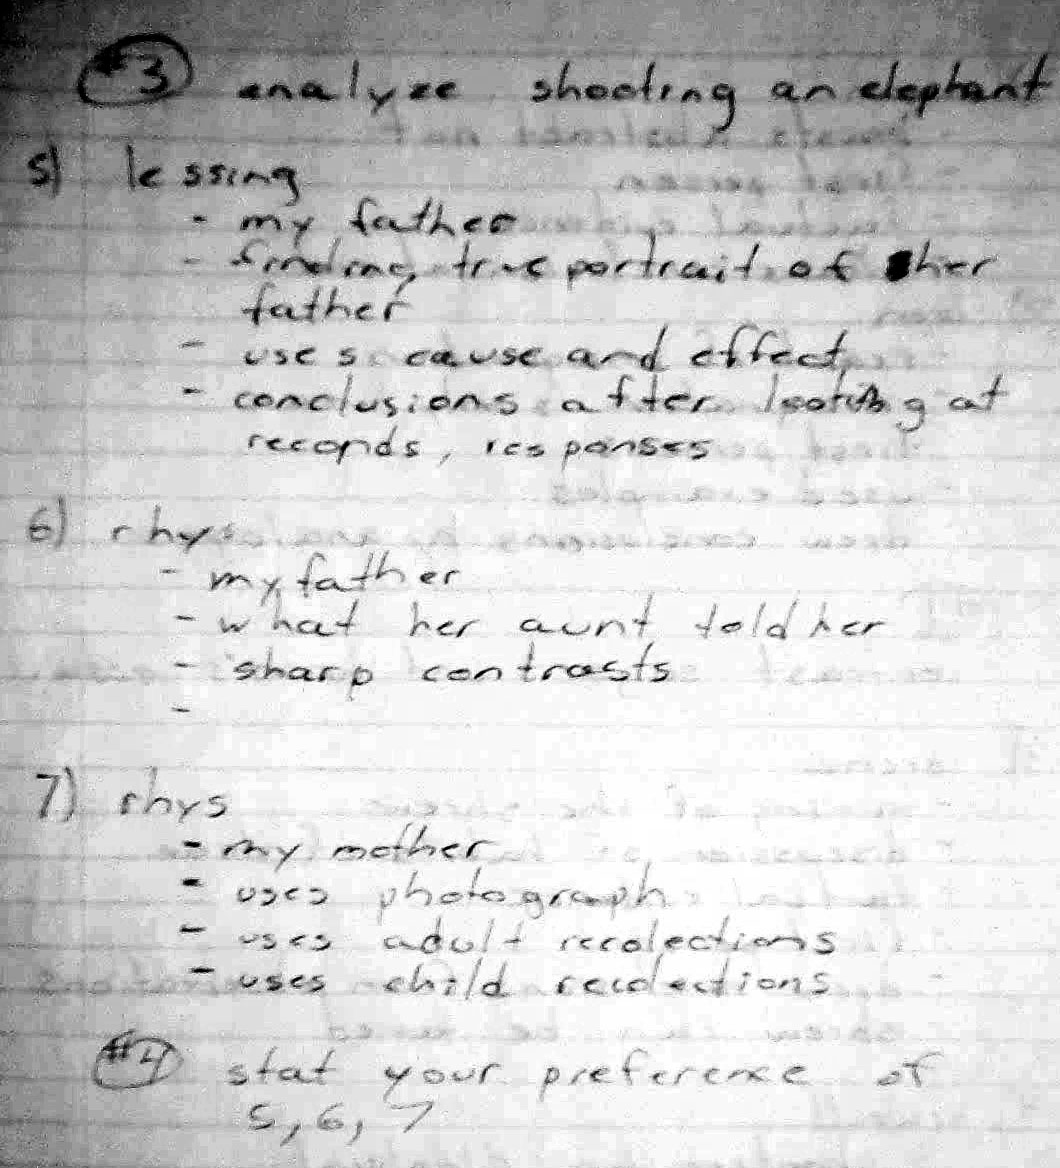 #3 analyze shooting an elephant
5) lessing
- my father
- finding true portrait of her
father
- uses cause and effect
- conclusions after looking at
records, responses
6) rhys
- my father
- what her aunt told her
- sharp contrasts
-
7) rhys
- my mother
- uses photograph
- uses adult recolections
- uses child recolections
#4 stat your preference of
5, 6, 7